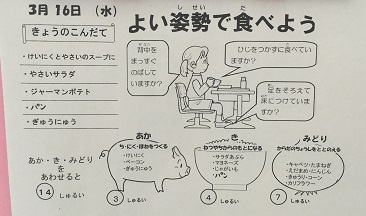 3月16日(水)
よい姿勢で食べよう
しせい
た
きょうのこんだて
・けいにくとやさいのスープに
・やさいサラダ
・ジャーマンポテト
・パン
・ぎゅうにゅう
背中を
まっすぐ
のばして
いますか?
ひじをつかずに食べてい
ますか?
足をそろえて
床につけていま
すか?
あか・き・みどり
をあわせると
14 しゅるい
あか
ち・にく・ほねをつくる
・けいにく
・ベーコン
・ぎゅうにゅう
3 しゅるい
き
ねつやちからのもとになる
・サラダあぶら
・マヨネーズ
・じゃがいも
・パン
4 しゅるい
みどり
からだのちょうしをととのえる
・キャベツ・たまねぎ
・えだまめ・にんじん
・きゅうり・コーン
・カリフラワー
7 しゅるい